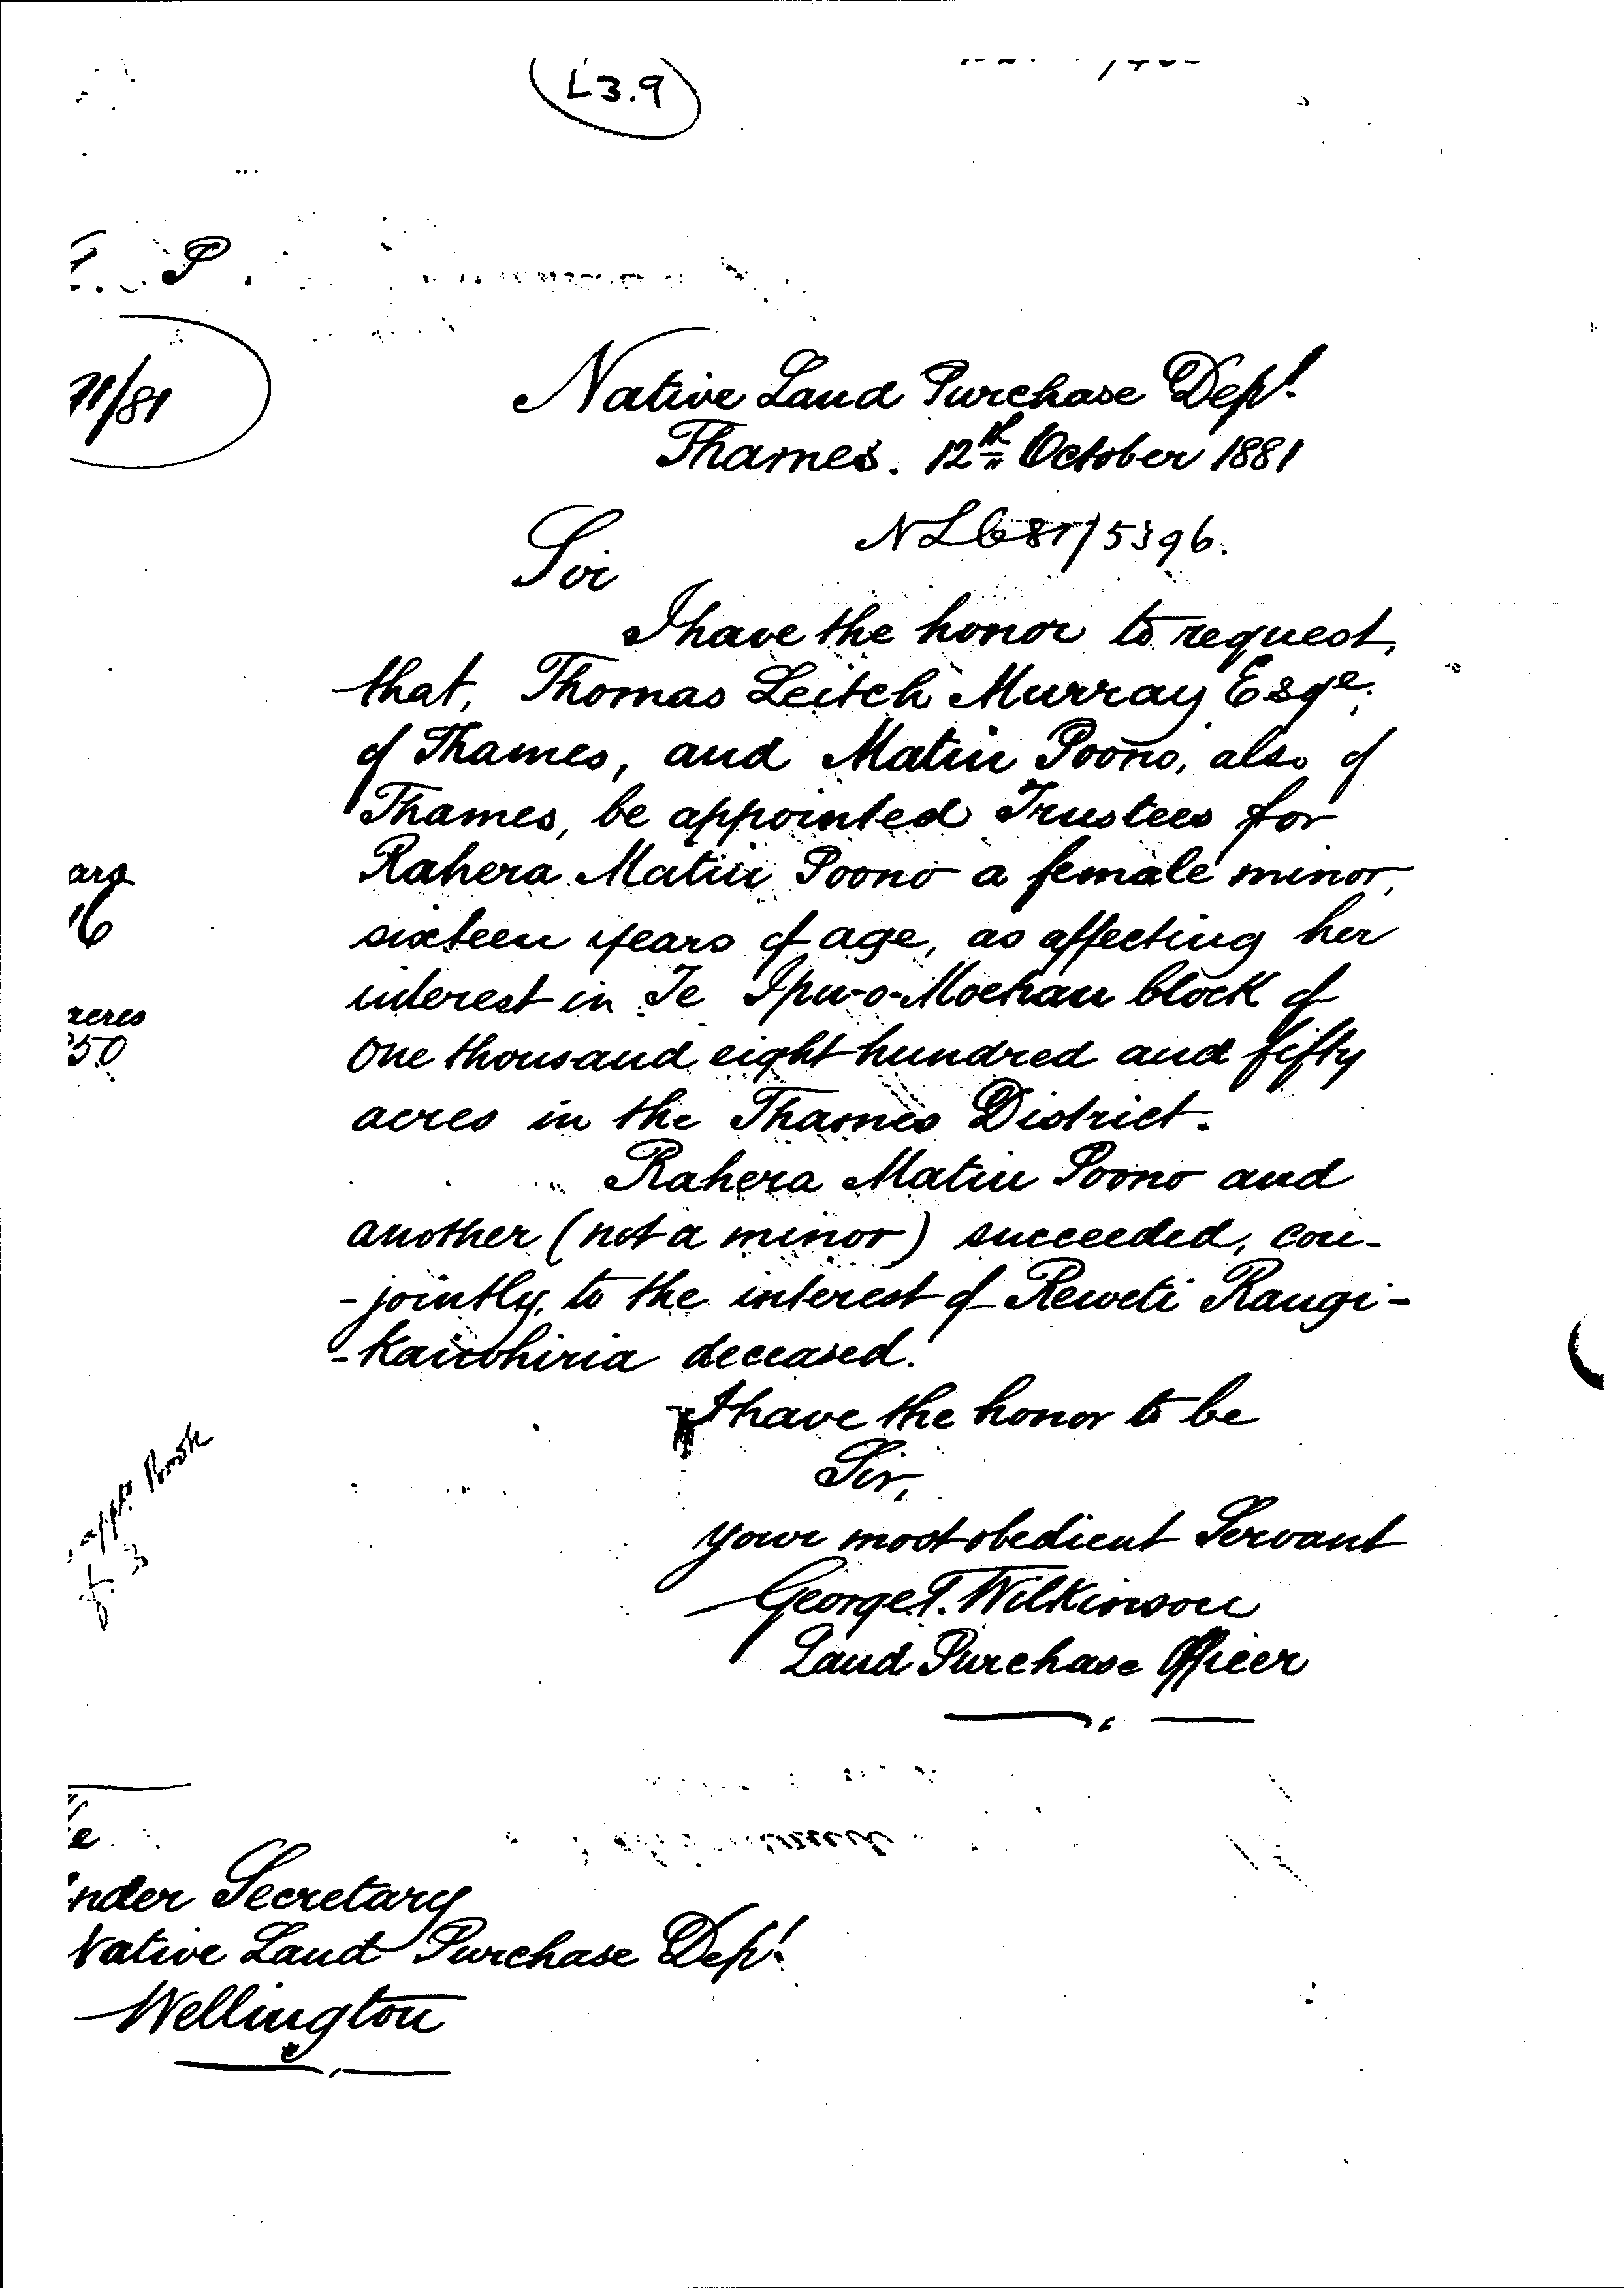 L3.9
P
71/81
Native Land Purchase Dept.
Thames. 12th October 1881
NLC 81/5396.
Sir
I have the honor to request,
that, Thomas Leitch Murray Esqe.
of Thames, and Matiu Poono, also of
Thames, be appointed Trustees for
Rahera Matiu Poono a female minor,
sixteen years of age, as affecting her
interest in Te Ipu-o-Moehau block of
One thousand eight hundred and fifty
acres in the Thames District.
Rahera Matiu Poono and
another (not a minor) succeeded, con-
-jointly, to the interest of Reweti Rangi-
-kaiwhiria deceased.
I have the honor to be
Sir,
your most obedient Servant
George T. Wilkinson
Land Purchase Officer
ars
16
acres
50
e
nder Secretary
Native Land Purchase Dept.
Wellington